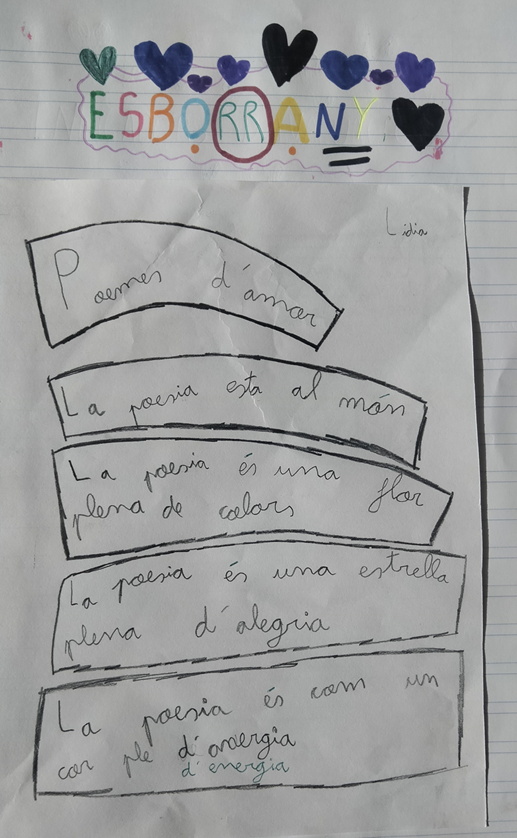 ESBORRANY
Lidia
Poemes d'amor
La poesia esta al món
La poesia és una flor
plena de colors
La poesia és una estrella
plena d'alegria
La poesia és com un
cor ple d'anergia
d'energia